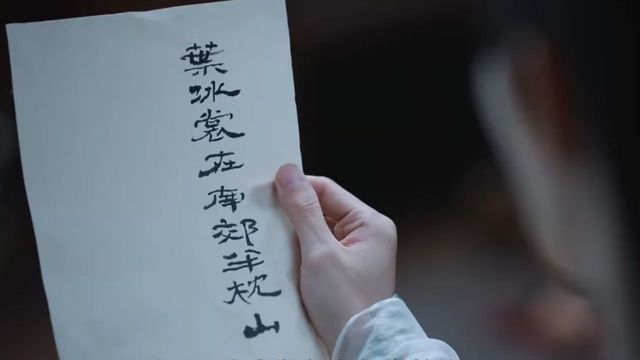 葉冰裳在南郊枕山